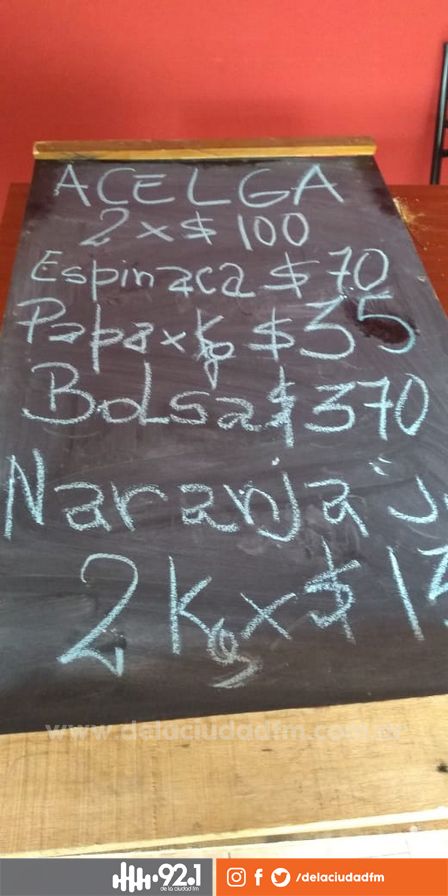 ACELGA
2 x $ 100
Espinaca $ 70
Papa x kg $ 35
Bolsa $ 370
Naranja
2 Kgs x $
www.delaciudadfm.com.ar
92.1
de la ciudad fm
/delaciudadfm